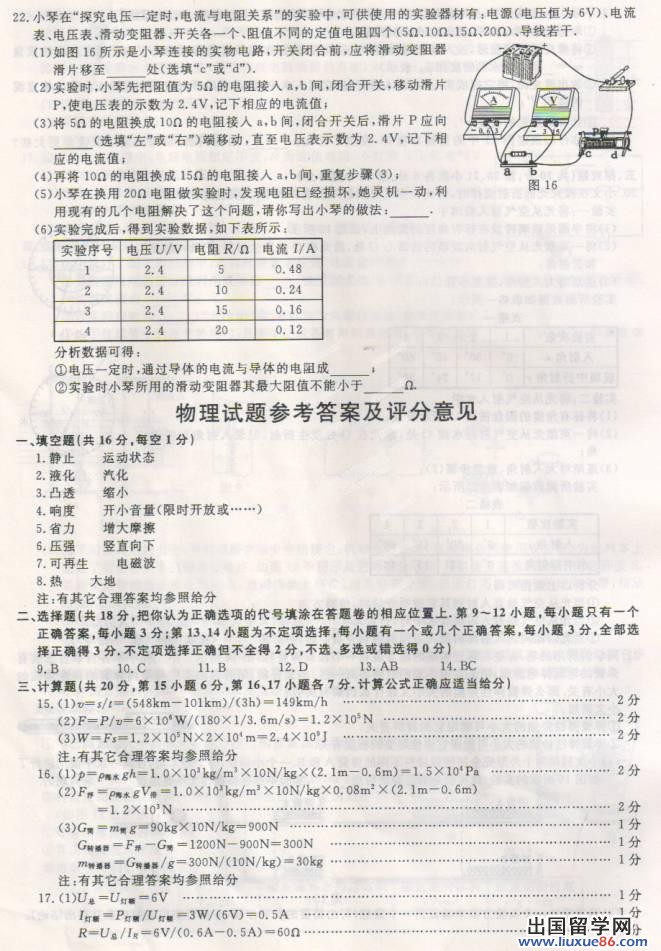 22.小琴在“探究电压一定时,电流与电阻关系”的实验中,可供使用的实验器材有:电源(电压恒为 6V)、电流
表、电压表、滑动变阻器、开关各一个、阻值不同的定值电阻四个(5Ω、10Ω、15Ω、20Ω)、导线若干.
(1)如图 16 所示是小琴连接的实物电路,开关闭合前,应将滑动变阻器
滑片移至______处(选填“c”或“d”).
(2)实验时,小琴先把阻值为 5Ω 的电阻接入 a,b 间,闭合开关,移动滑片
P,使电压表的示数为 2.4V,记下相应的电流值;
(3)将 5Ω 的电阻换成 10Ω 的电阻接入 a,b 间,闭合开关后,滑片 P 应向
______(选填“左”或“右”)端移动,直至电压表示数为 2.4V,记下相
应的电流值;
(4)再将 10Ω 的电阻换成 15Ω 的电阻接入 a,b 间,重复步骤(3);
(5)小琴在换用 20Ω 电阻做实验时,发现电阻已经损坏,她灵机一动,利
用现有的几个电阻解决了这个问题,请你写出小琴的做法:______.
A
V
- 0.6 3
- 3 15
P
c d
a b
图 16
(6)实验完成后,得到实验数据,如下表所示:
实验序号 电压 U/V 电阻 R/Ω 电流 I/A
1 2.4 5 0.48
2 2.4 10 0.24
3 2.4 15 0.16
4 2.4 20 0.12
分析数据可得:
①电压一定时,通过导体的电流与导体的电阻成______;
②实验时小琴所用的滑动变阻器其最大阻值不能小于______Ω.
物理试题参考答案及评分意见
一、填空题(共 16 分,每空 1 分)
1.静止 运动状态
2.液化 汽化
3.凸透 缩小
4.响度 开小音量(限时开放或……)
5.省力 增大摩擦
6.压强 竖直向下
7.可再生 电磁波
8.热 大地
注:有其它合理答案均参照给分
二、选择题(共 18 分,把你认为正确选项的代号填涂在答题卷的相应位置上.第 9~12 小题,每小题只有一个
正确答案,每小题 3 分;第 13、14 小题为不定项选择,每小题有一个或几个正确答案,每小题 3 分,全部选
择正确得 3 分.不定项选择正确但不全得 2 分,不选、多选或错选得 0 分)
9.B 10.C 11.B 12.D 13.AB 14.BC
三、计算题(共 20 分,第 15 小题 6 分,第 16、17 小题各 7 分.计算公式正确应适当给分)
15.(1)v=s/t=(548km-101km)/(3h)=149km/h …… 2 分
(2)F=P/v=6×10⁶W/(180×1/3.6m/s)=1.2×10⁵N …… 2 分
(3)W=Fs=1.2×10⁵N×2×10⁴m=2.4×10⁹J …… 2 分
注:有其它合理答案均参照给分
16.(1)p=ρ海水gh=1.0×10³kg/m³×10N/kg×(2.1m-0.6m)=1.5×10⁴Pa …… 2 分
(2)F浮=ρ海水gV排=1.0×10³kg/m³×10N/kg×0.08m²×(2.1m-0.6m)
=1.2×10³N …… 2 分
(3)G筒=m筒g=90kg×10N/kg=900N …… 1 分
G转播器=F浮-G筒=1200N-900N=300N …… 1 分
m转播器=G转播器/g=300N/(10N/kg)=30kg …… 1 分
注:有其它合理答案均参照给分
17.(1)U总=U灯额=6V …… 1 分
I灯额=P灯额/U灯额=3W/(6V)=0.5A …… 1 分
R=U总/IR=6V/(0.6A-0.5A)=60Ω …… 1 分
出国留学网
www.liuxue86.com